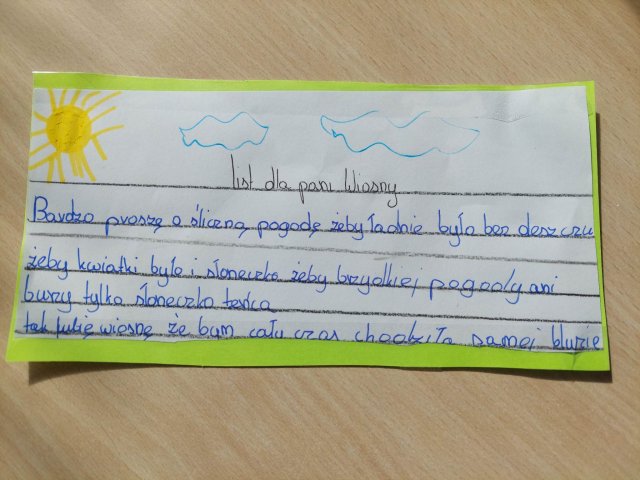 list dla pani Wiosny
Bardzo proszę o śliczną pogodę żeby ładnie było bez deszczu
żeby kwiatki było i słoneczko żeby brzydkiej pogody ani
burzy tylko słoneczko
tak lubię wiosnę że bym cały czas chodziła samej bluzie